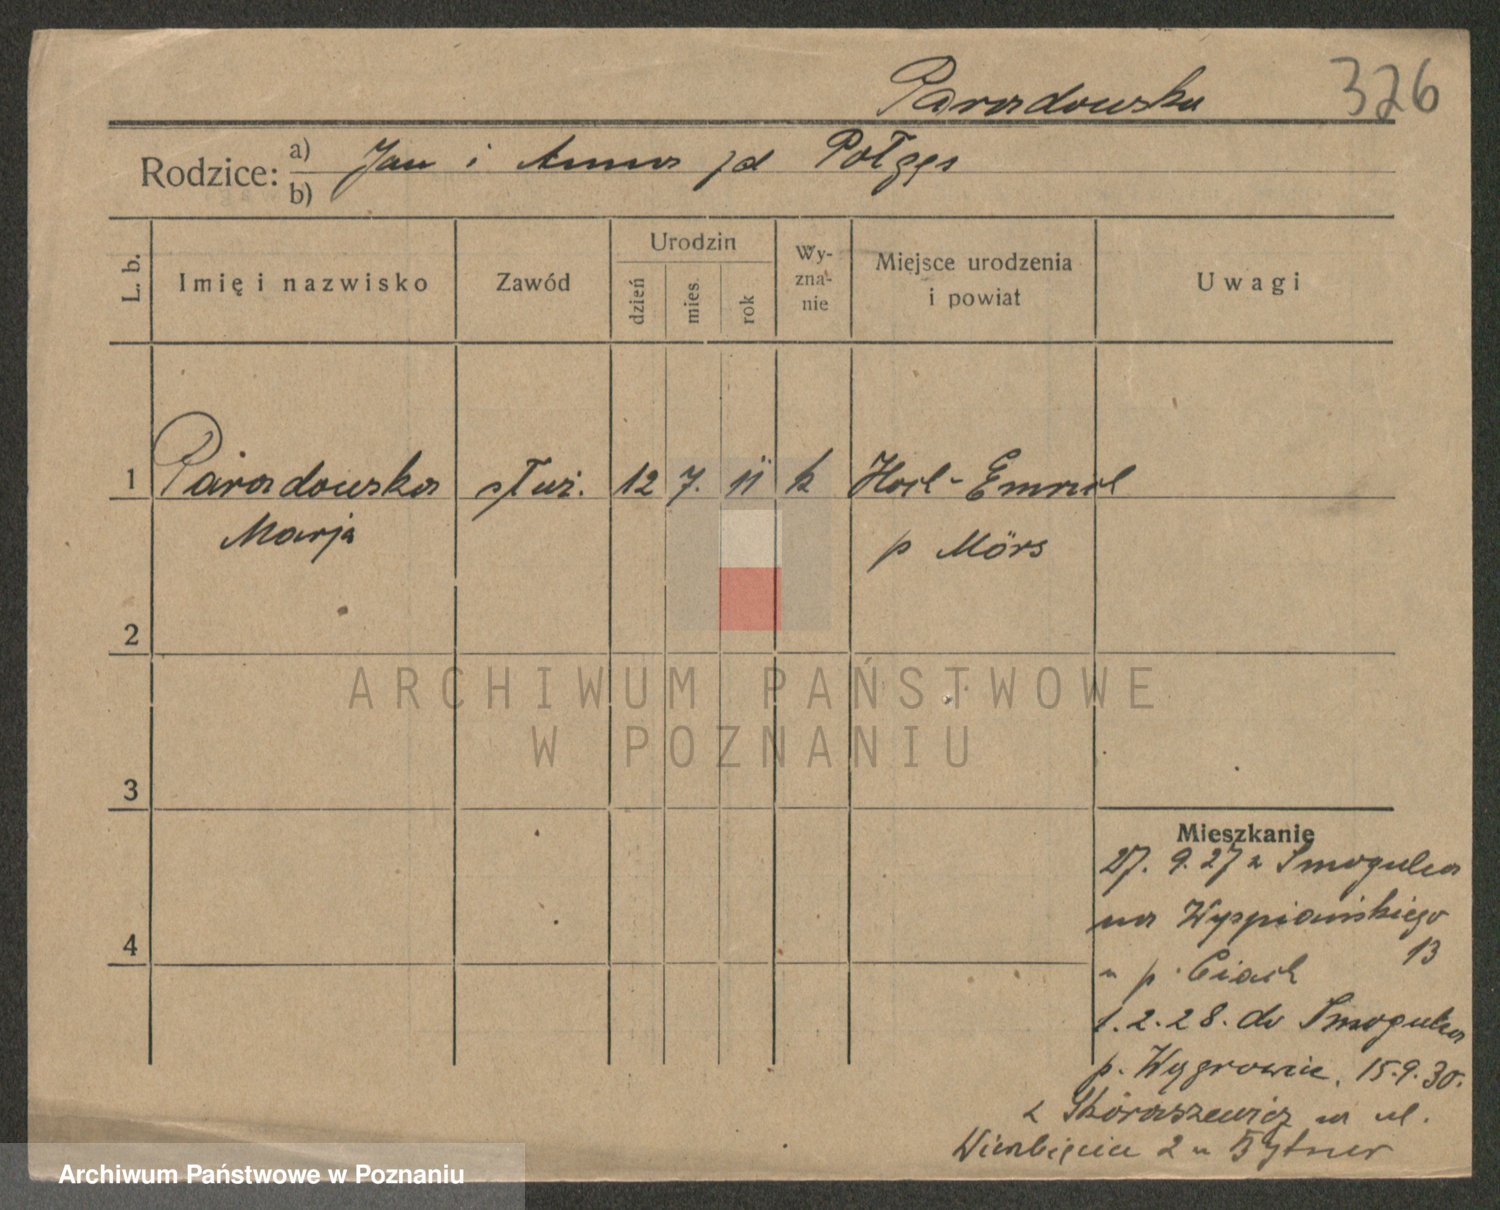 Paradowska 326
Rodzice: a) Jan i Anna zd
b)
L. b. Imię i nazwisko Zawód Urodzin dzień mies. rok Wy-zna-nie Miejsce urodzenia i powiat Uwagi
1 Paradowska służ. 12 7. 11 k Hoch-Emrich
Marja p Mörs
2
ARCHIWUM PAŃSTWOWE
W POZNANIU
3
Mieszkanie
27. 9. 27 z Smogulca
na Wyspiańskiego
4 13
u p. Ciach
1. 2. 28. do Smogulca
p. Wągrowiec. 15.9.30.
z Skoraszewicz na ul.
Wierzbięcice 2 u
Archiwum Państwowe w Poznaniu